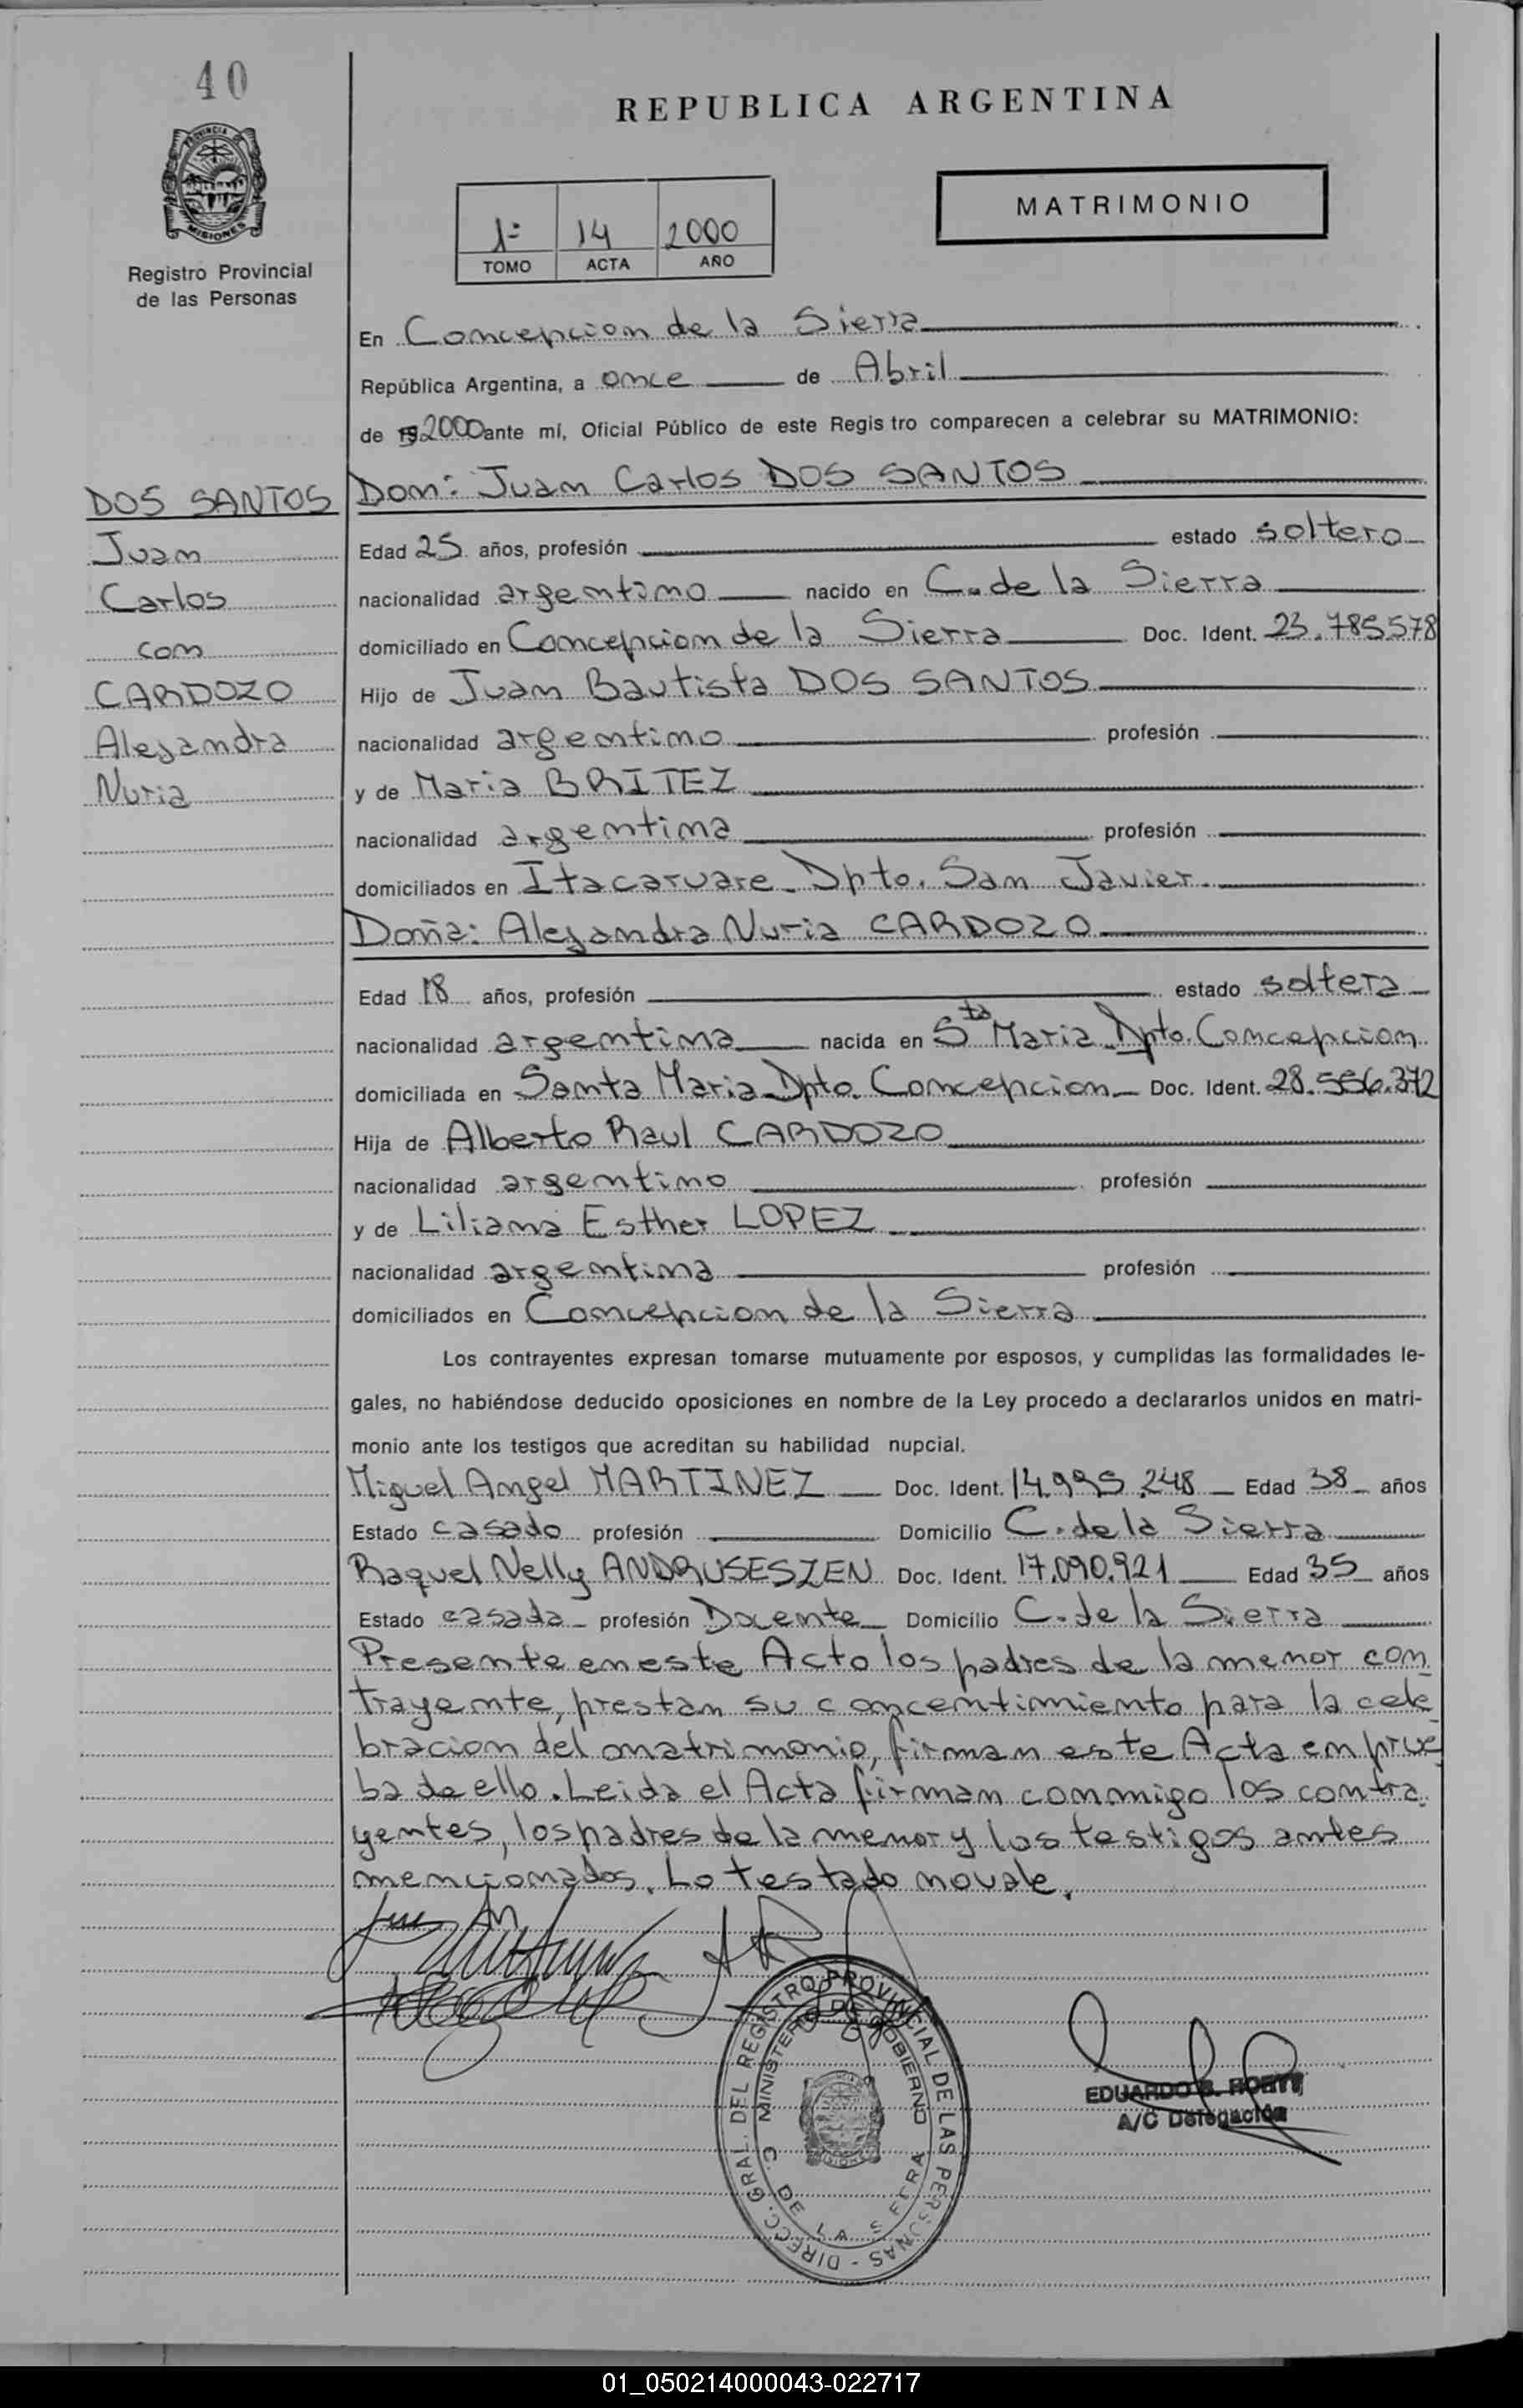 40
REPUBLICA ARGENTINA
PROVINCIA DE
MISIONES
Registro Provincial
de las Personas
1º 14 2000
TOMO ACTA AÑO
MATRIMONIO
En Concepcion de la Sierra
República Argentina, a once de Abril
de 19 2000 ante mí, Oficial Público de este Registro comparecen a celebrar su MATRIMONIO:
DOS SANTOS
Juan
Carlos
con
CARDOZO
Alejandra
Nuria
Don: Juan Carlos DOS SANTOS
Edad 25 años, profesión estado soltero
nacionalidad argentino nacido en C. de la Sierra
domiciliado en Concepcion de la Sierra Doc. Ident. 23.785.578
Hijo de Juan Bautista DOS SANTOS
nacionalidad argentino profesión
y de Maria BRITEZ
nacionalidad argentina profesión
domiciliados en Itacaruare - Dpto. San Javier.
Doña: Alejandra Nuria CARDOZO
Edad 18 años, profesión estado soltera
nacionalidad argentina nacida en Sta Maria - Dpto. Concepcion
domiciliada en Santa Maria - Dpto. Concepcion - Doc. Ident. 28.556.372
Hija de Alberto Raul CARDOZO
nacionalidad argentino profesión
y de Liliana Esther LOPEZ
nacionalidad argentina profesión
domiciliados en Concepcion de la Sierra
Los contrayentes expresan tomarse mutuamente por esposos, y cumplidas las formalidades le-
gales, no habiéndose deducido oposiciones en nombre de la Ley procedo a declararlos unidos en matri-
monio ante los testigos que acreditan su habilidad nupcial.
Miguel Angel MARTINEZ Doc. Ident. 14.995.248 Edad 38 años
Estado casado profesión Domicilio C. de la Sierra
Raquel Nelly ANDRUSESZEN Doc. Ident. 17.090.921 Edad 35 años
Estado casada profesión Docente Domicilio C. de la Sierra
Presente en este Acto los padres de la menor con
trayente, prestan su concentimiento para la cele
bracion del matrimonio, firman este Acta en prue
ba de ello. Leida el Acta firman conmigo los contra
yentes, los padres de la menor y los testigos antes
mencionados. Lo testado no vale.
DIRECC. GRAL. DEL REGISTRO PROVINCIAL DE LAS PERSONAS -
MINISTERIO DE GOBIERNO
C. DE LA SIERRA
EDUARDO
A/C Delegación
01_050214000043-022717